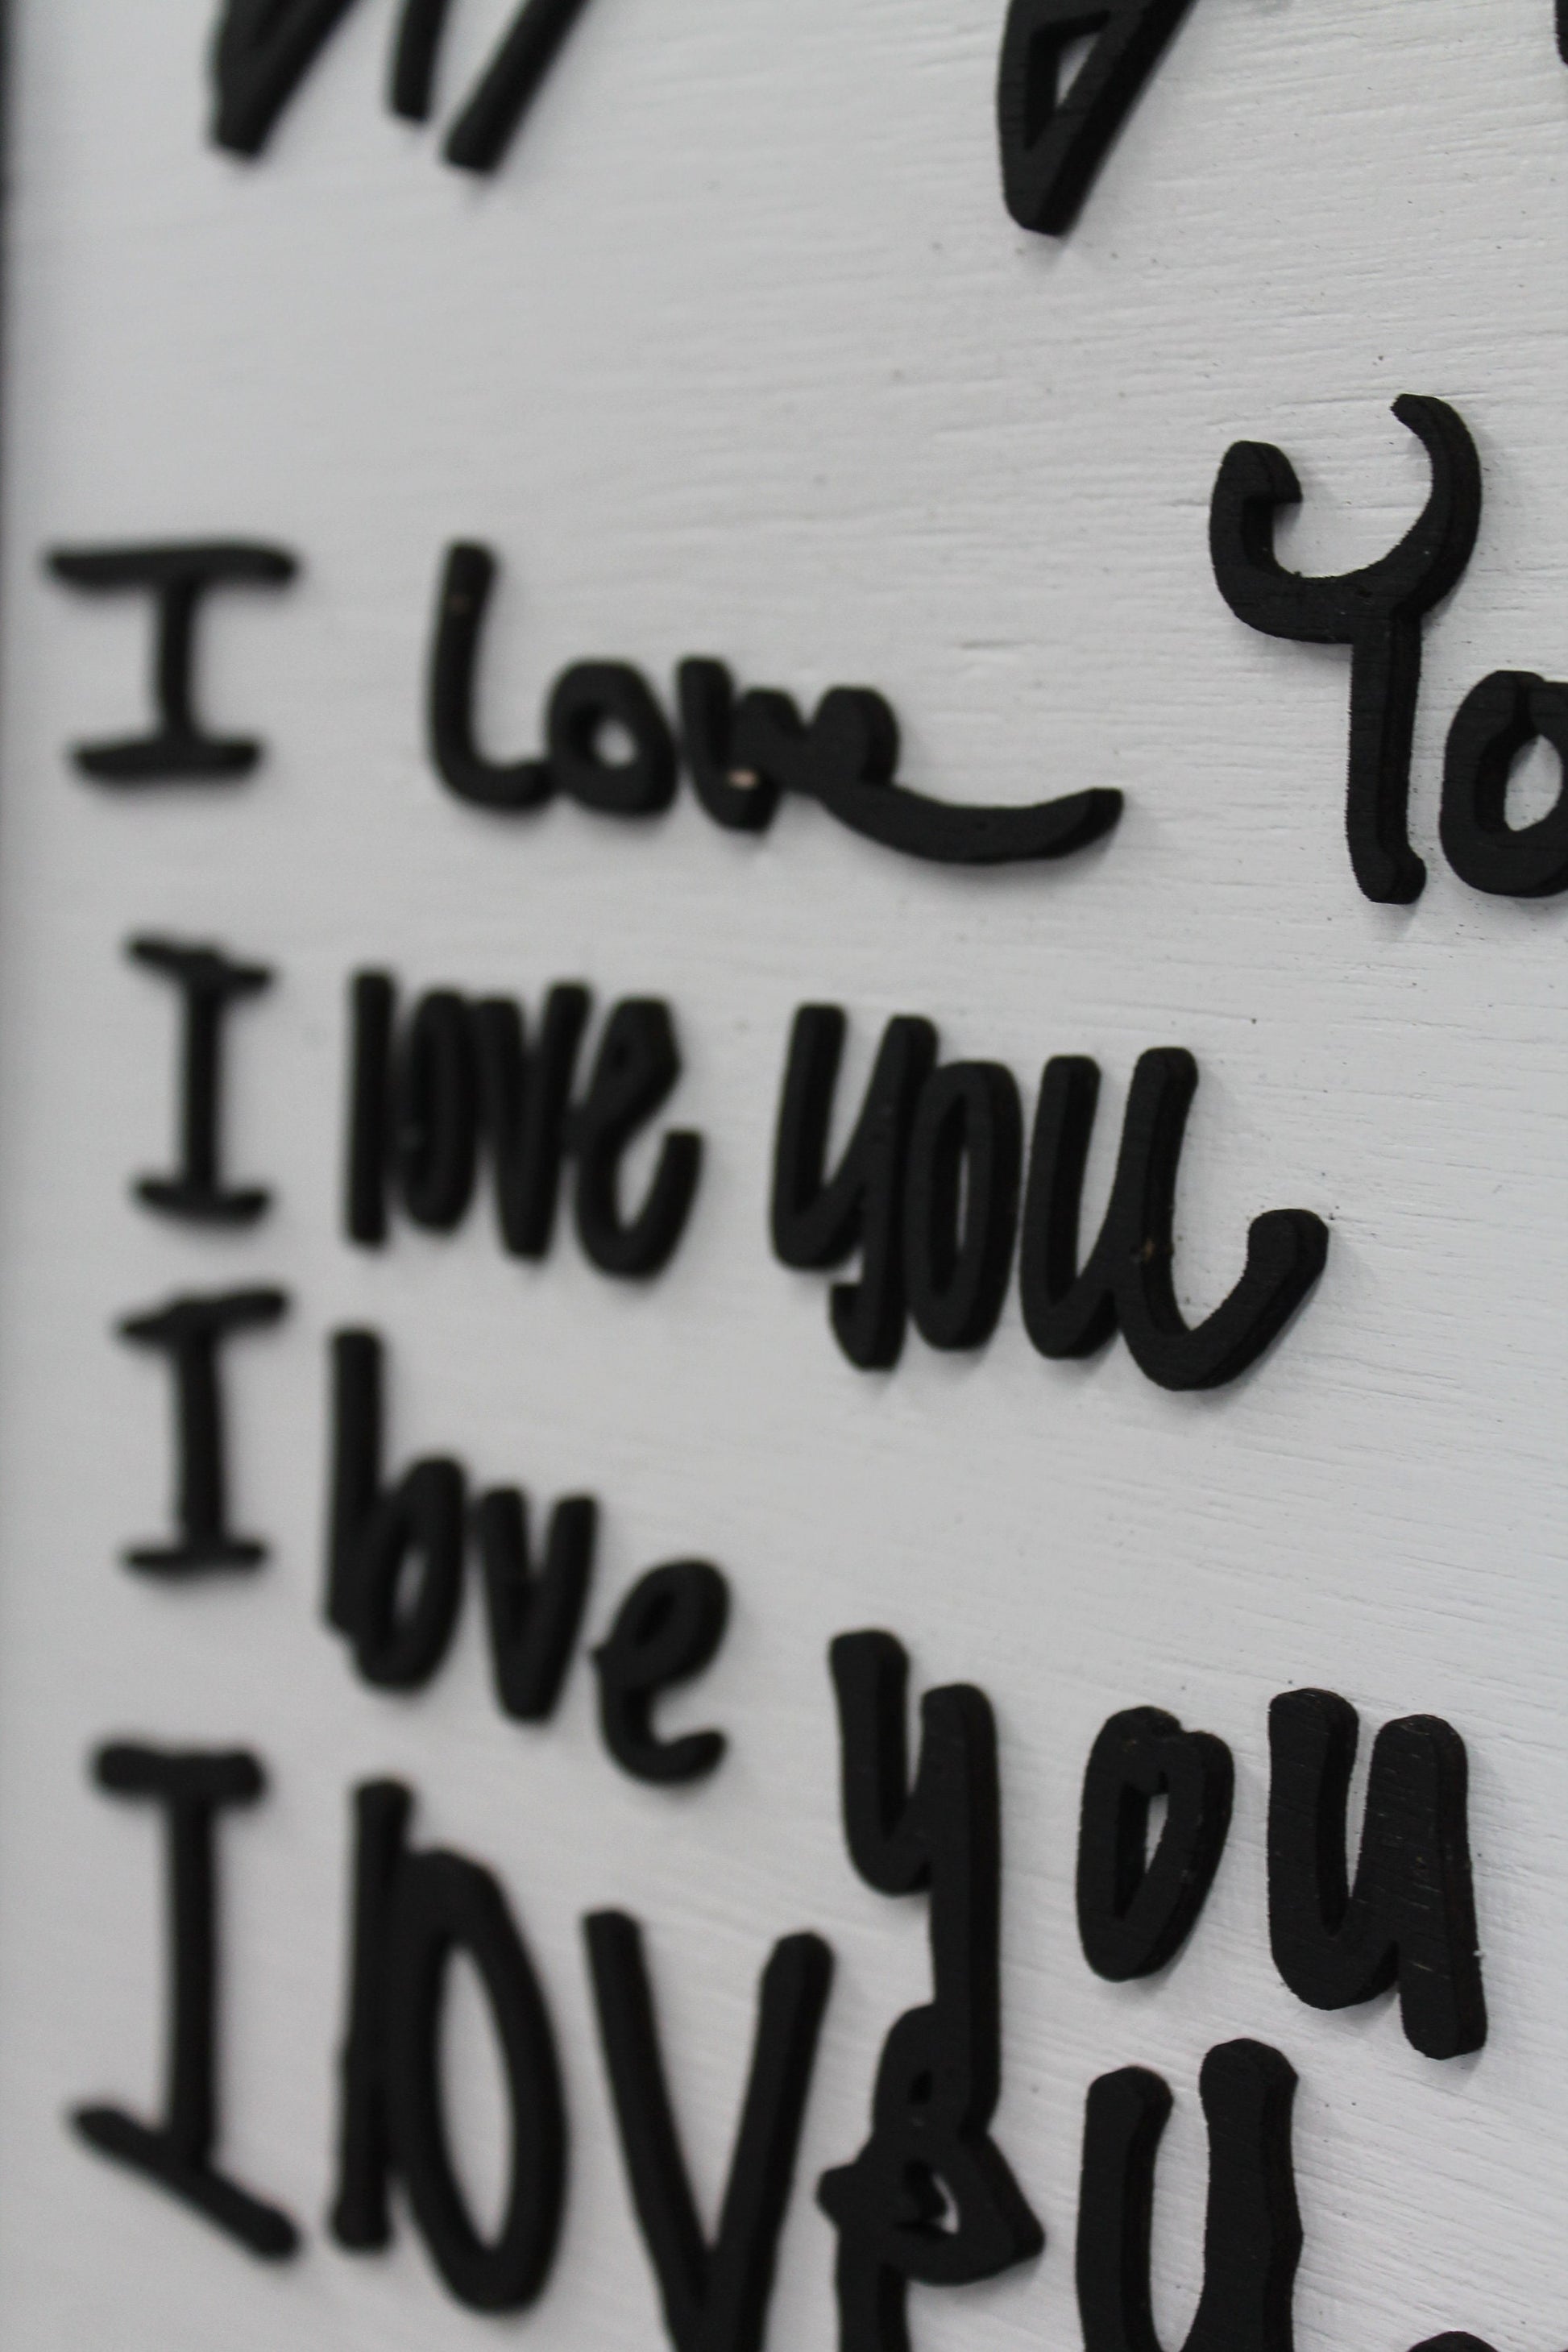 I Love Yo
I love you
I love you
I love